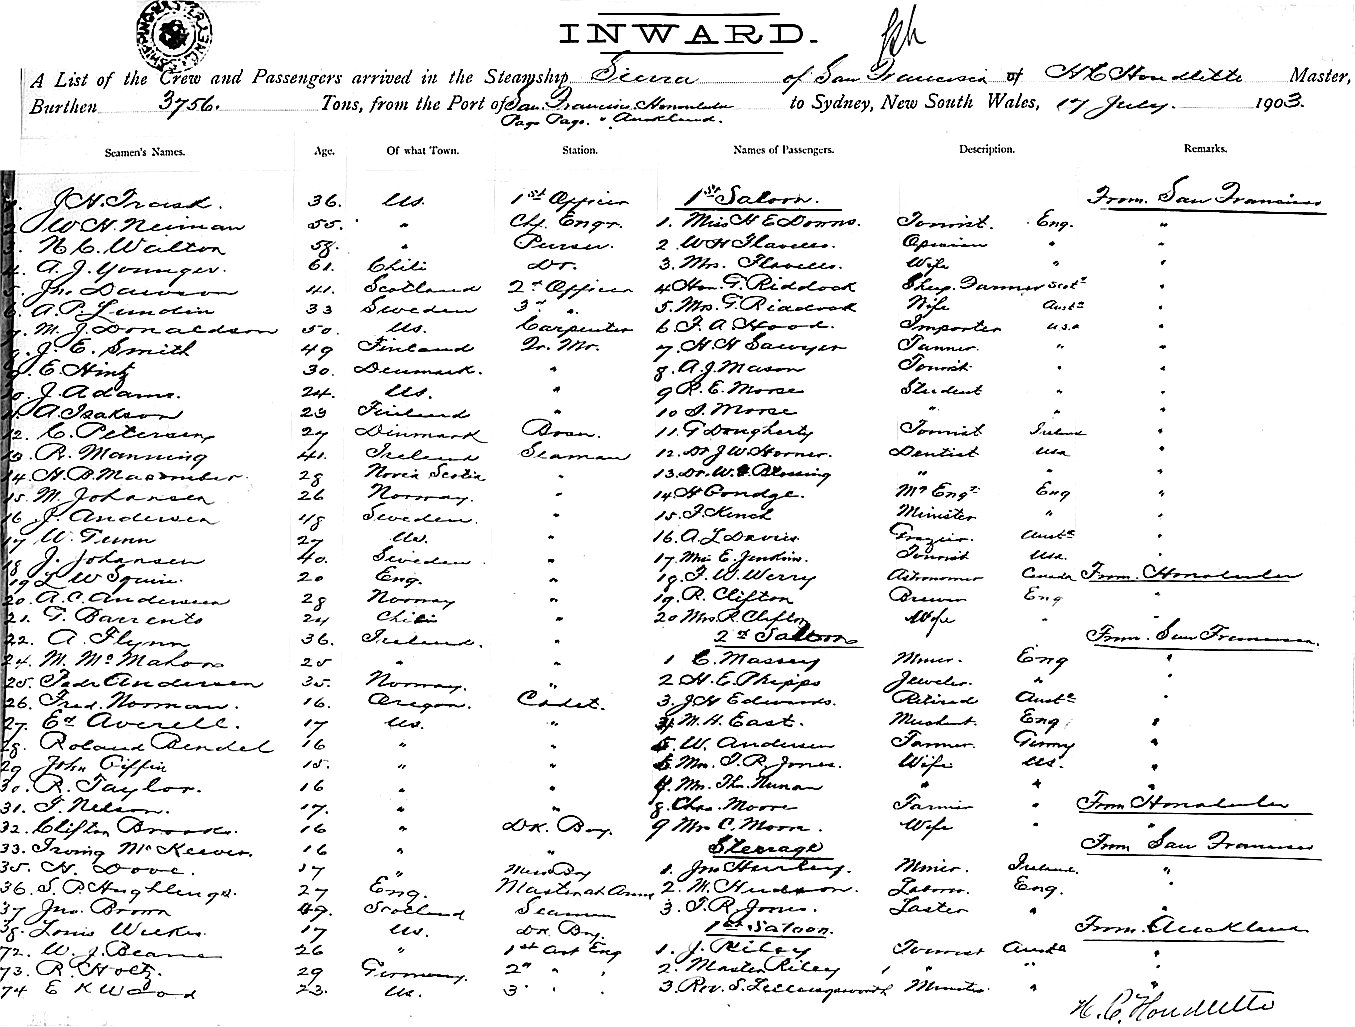 INWARD.
A List of the Crew and Passengers arrived in the Steamship Sierra of San Francisco of H C Houdlette Master,
Burthen 3756. Tons, from the Port of San Francisco Honolulu to Sydney, New South Wales, 17 July. 1903.
Pago Pago " Auckland.
Seamen's Names. Age. Of what Town. Station. Names of Passengers. Description. Remarks.
1. J H Trask. 36. US. 1st Officer 1st Saloon. From San Francisco
2 W H Neiman 55. " Chf. Engr. 1. Miss H E Downs. Tourist. Eng. "
3. N C Walton 58. " Purser. 2. W H Flavelle. Optician " "
4. A. J. Younger. 61. Chili Dr. 3. Mrs. Flavelle. Wife " "
5. Jno Dawson 41. Scotland 2nd Officer 4 Hon. G. Riddock Shep. Farmer Scotd "
6 A P Lundin 33 Sweden 3rd " 5. Mrs. G. Riddock Wife Austa "
7. M. J. Donaldson 50. US. Carpenter 6 F. A Hood. Importer USA "
8. J. E. Smith 49 Finland Qr. Mr. 7. H H Sawyer Farmer. " "
9. E Hintz 30. Denmark. " 8. A J Mason Tourist. " "
10. J. Adams. 24. US. " 9 R. E. Morse Student " "
11. A. Isakson 23 Finland " 10 S. Morse " " "
12. C. Petersen 27 Dinmark Bosn. 11. G Dougherty Tourist Ireland "
13. R. Manning 41. Ireland Seaman 12. Dr J W Horner. Dentist USA "
14. H. B Macomber. 28 Novia Scotia " 13. Dr. W. Blessing " " "
15. M. Johansen 26 Norway. " 14 H Gondge. Mg Engr Eng "
16 J. Andersen 48 Sweden. " 15. J. Kench Minister " "
17 W. Tunn 27 US. " 16. A L Davies. Grazier. Austa "
18 J. Johansen 40. Sweden. " 17. Mrs E. Jenkins. Tourist USA. "
19 L W Squire. 20 Eng. " 18. F. W. Werry Astronomer Canada From Honolulu
20. A. C. Andersen 28 Norway " 19. R. Clifton Brewer Eng "
21. G. Barrento 24 Chili " 20 Mrs. R. Clifton Wife " "
22. A. Flynn 36. Ireland. " 2nd Saloon From San Francisco.
24. M. McMahon 25 " " 1 C. Massey Miner. Eng "
25. Pedr Andersen 35. Norway. " 2 H. E. Phipps Jeweler. " "
26. Fred. Norman. 16. Oregon. Cadet. 3. J H Edwards. Retired Austa "
27. Ed Averell. 17 US. " 4 M. H. East. Merchant Eng. "
28. Roland Bendel 16 " " 5. W. Andersen Farmer. Germy "
29 John Giffin 15. " " 6 Mrs. T. R. Jones. Wife US. "
30. R. Taylor. 16 " " 7. Mrs. Thos. Nunan " " "
31. T. Nelson. 17. " " 8 Chas. Moore Farmer " From Honolulu
32. Clifton Brooks. 16 " Dk. Boy. 9 Mrs C. Moore. Wife " "
33. Irving McKeever. 16 " " Steerage From San Francisco
35. H. Dove. 17 " Mess Boy 1. Jno Hurley. Miner. Ireland. "
36. S. P. Hughlings. 27 Eng. Master at Arms 2. M. Hudson. Laborer. Eng. "
37 Jno. Brown 49. Scotland Seaman 3. T. R. Jones. Laster " "
38. Louis Weekes. 17 US. Dk. Boy. 1st Saloon. From Auckland
72. W. J. Beane 26 " 1st Asst Eng 1. J. Riley Tourist Austa "
73. R. Holtz. 29 Germany. 2nd " " 2. Master Riley " " "
74 E K Wood 23. US. 3 " " 3. Rev. S. Hollingsworth Minister. " "
H. C. Houdlette